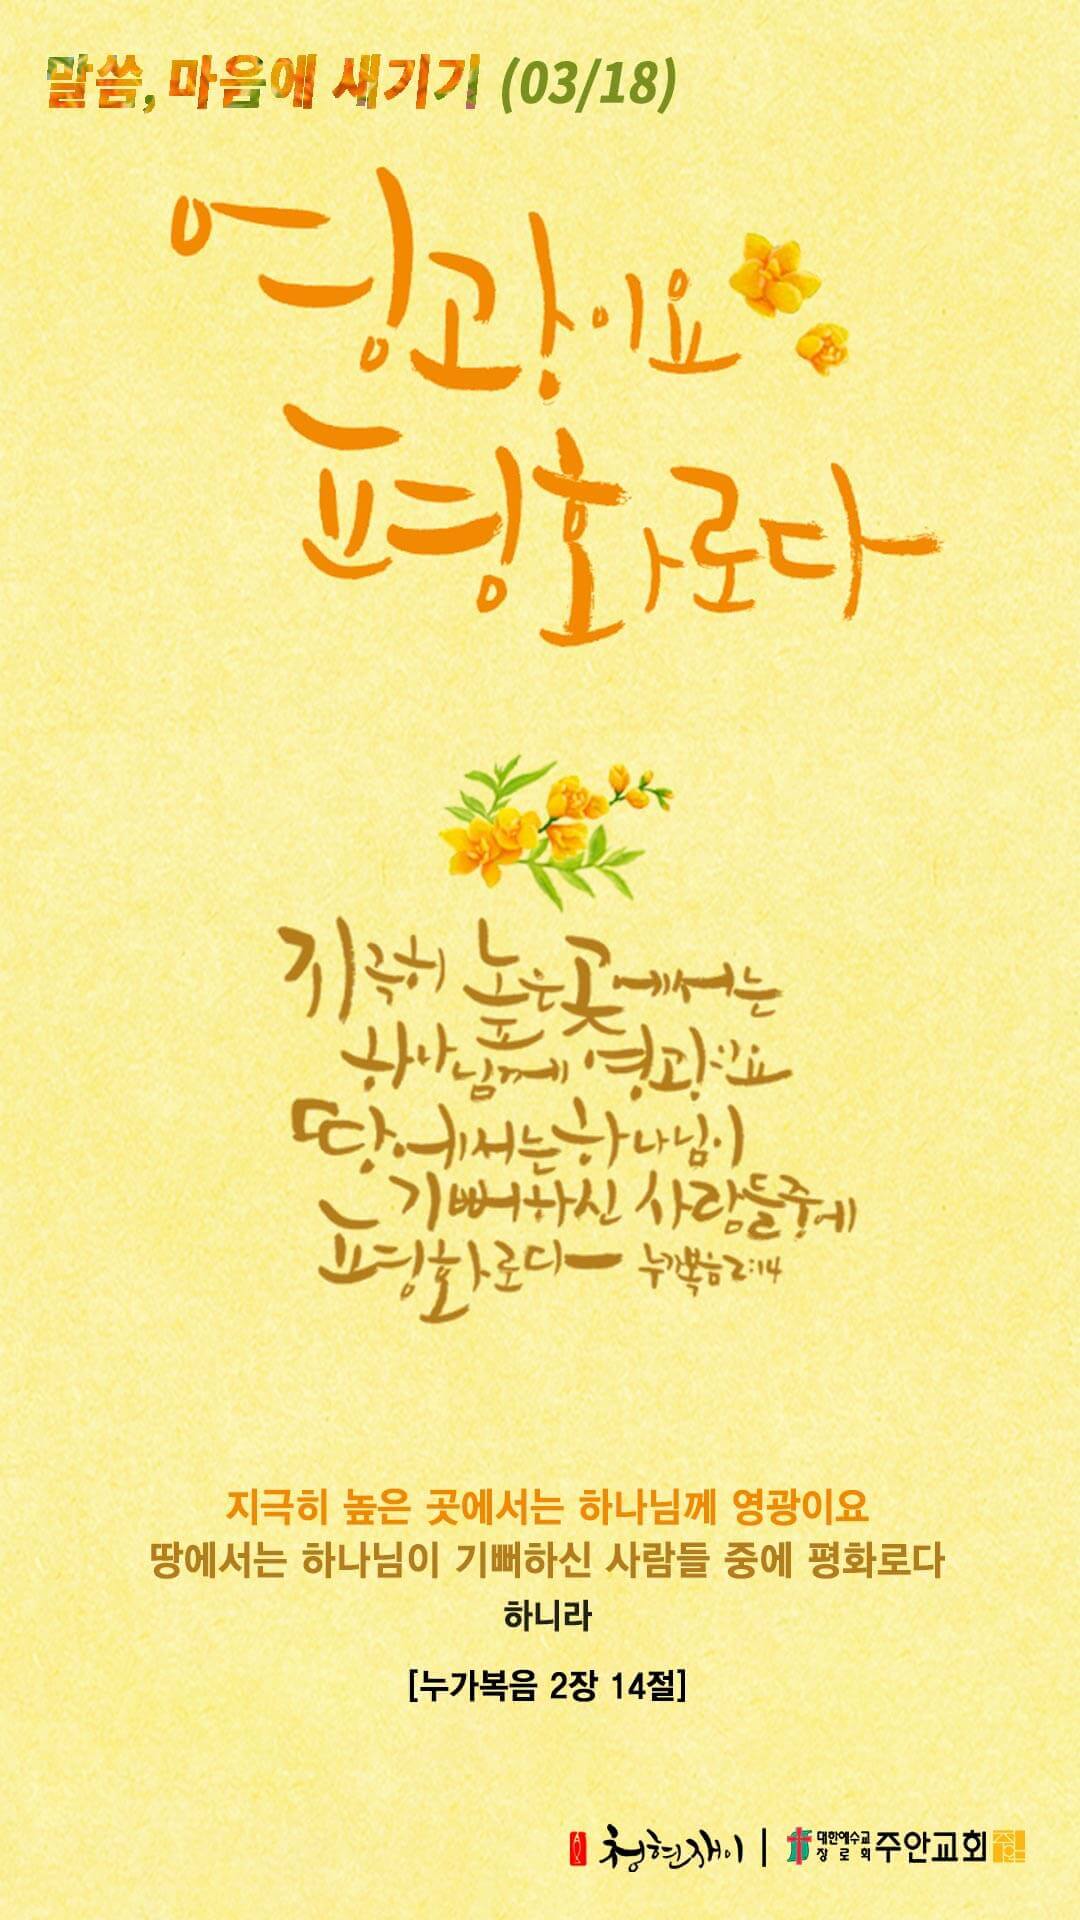 말씀, 마음에 새기기 (03/18)
영광이요
평화로다
지극히 높은 곳에서는
하나님께 영광이요
땅에서는 하나님이
기뻐하신 사람들 중에
평화로다 누가복음 2:14
지극히 높은 곳에서는 하나님께 영광이요
땅에서는 하나님이 기뻐하신 사람들 중에 평화로다
하니라
[누가복음 2장 14절]
청현재이 | 대한예수교 장로회 주안교회